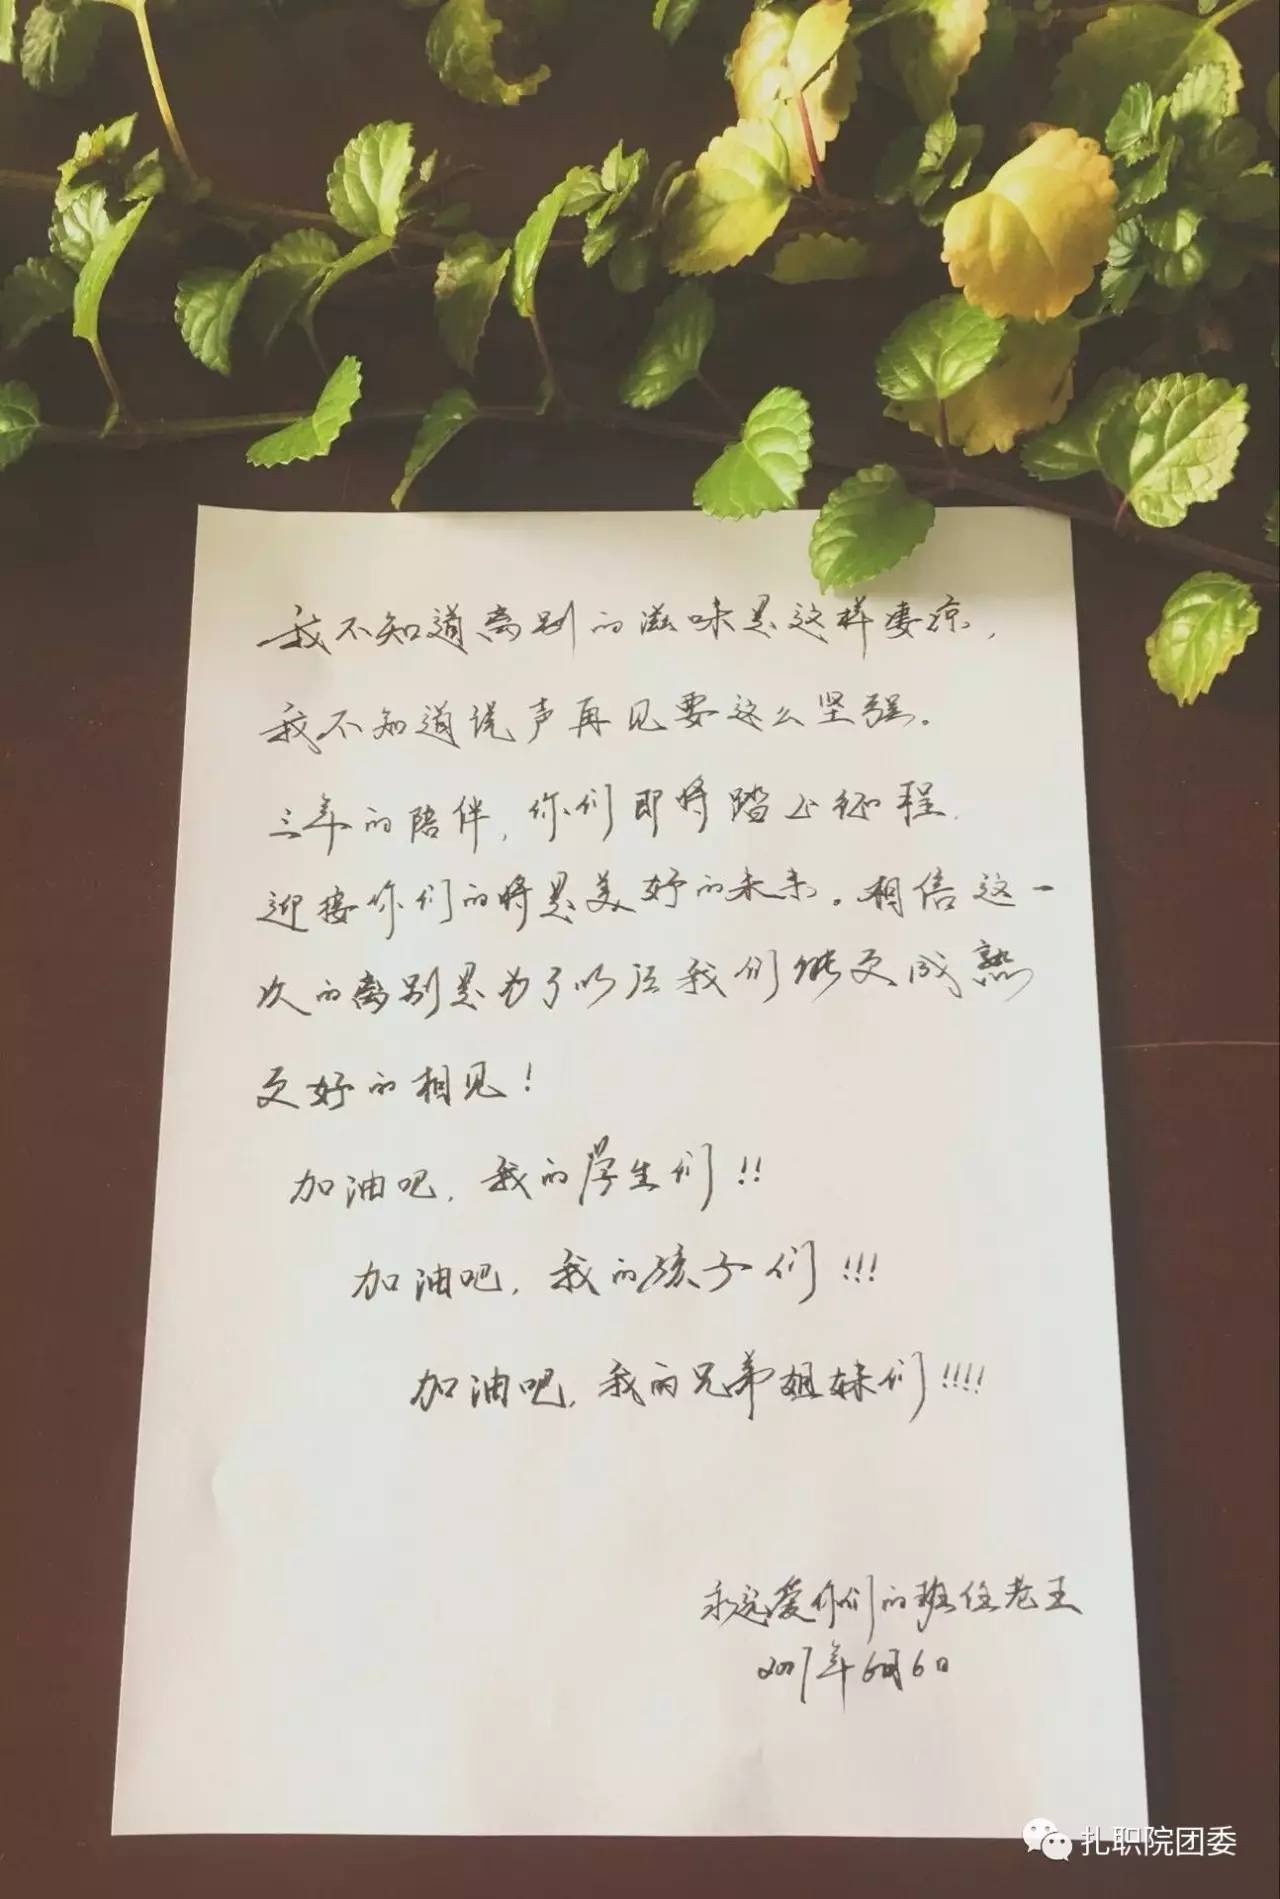 我不知道离别的滋味是这样凄凉，
我不知道说声再见要这么坚强。
三年的陪伴，你们即将踏上征程.
迎接你们的将是美好的未来。相信这一
次的离别是为了以后我们能更成熟
更好的相见！
加油吧，我的学生们！！
加油吧，我的孩子们！！！
加油吧，我的兄弟姐妹们！！！！
永远爱你们的班任老王
2017年6月6日
扎职院团委